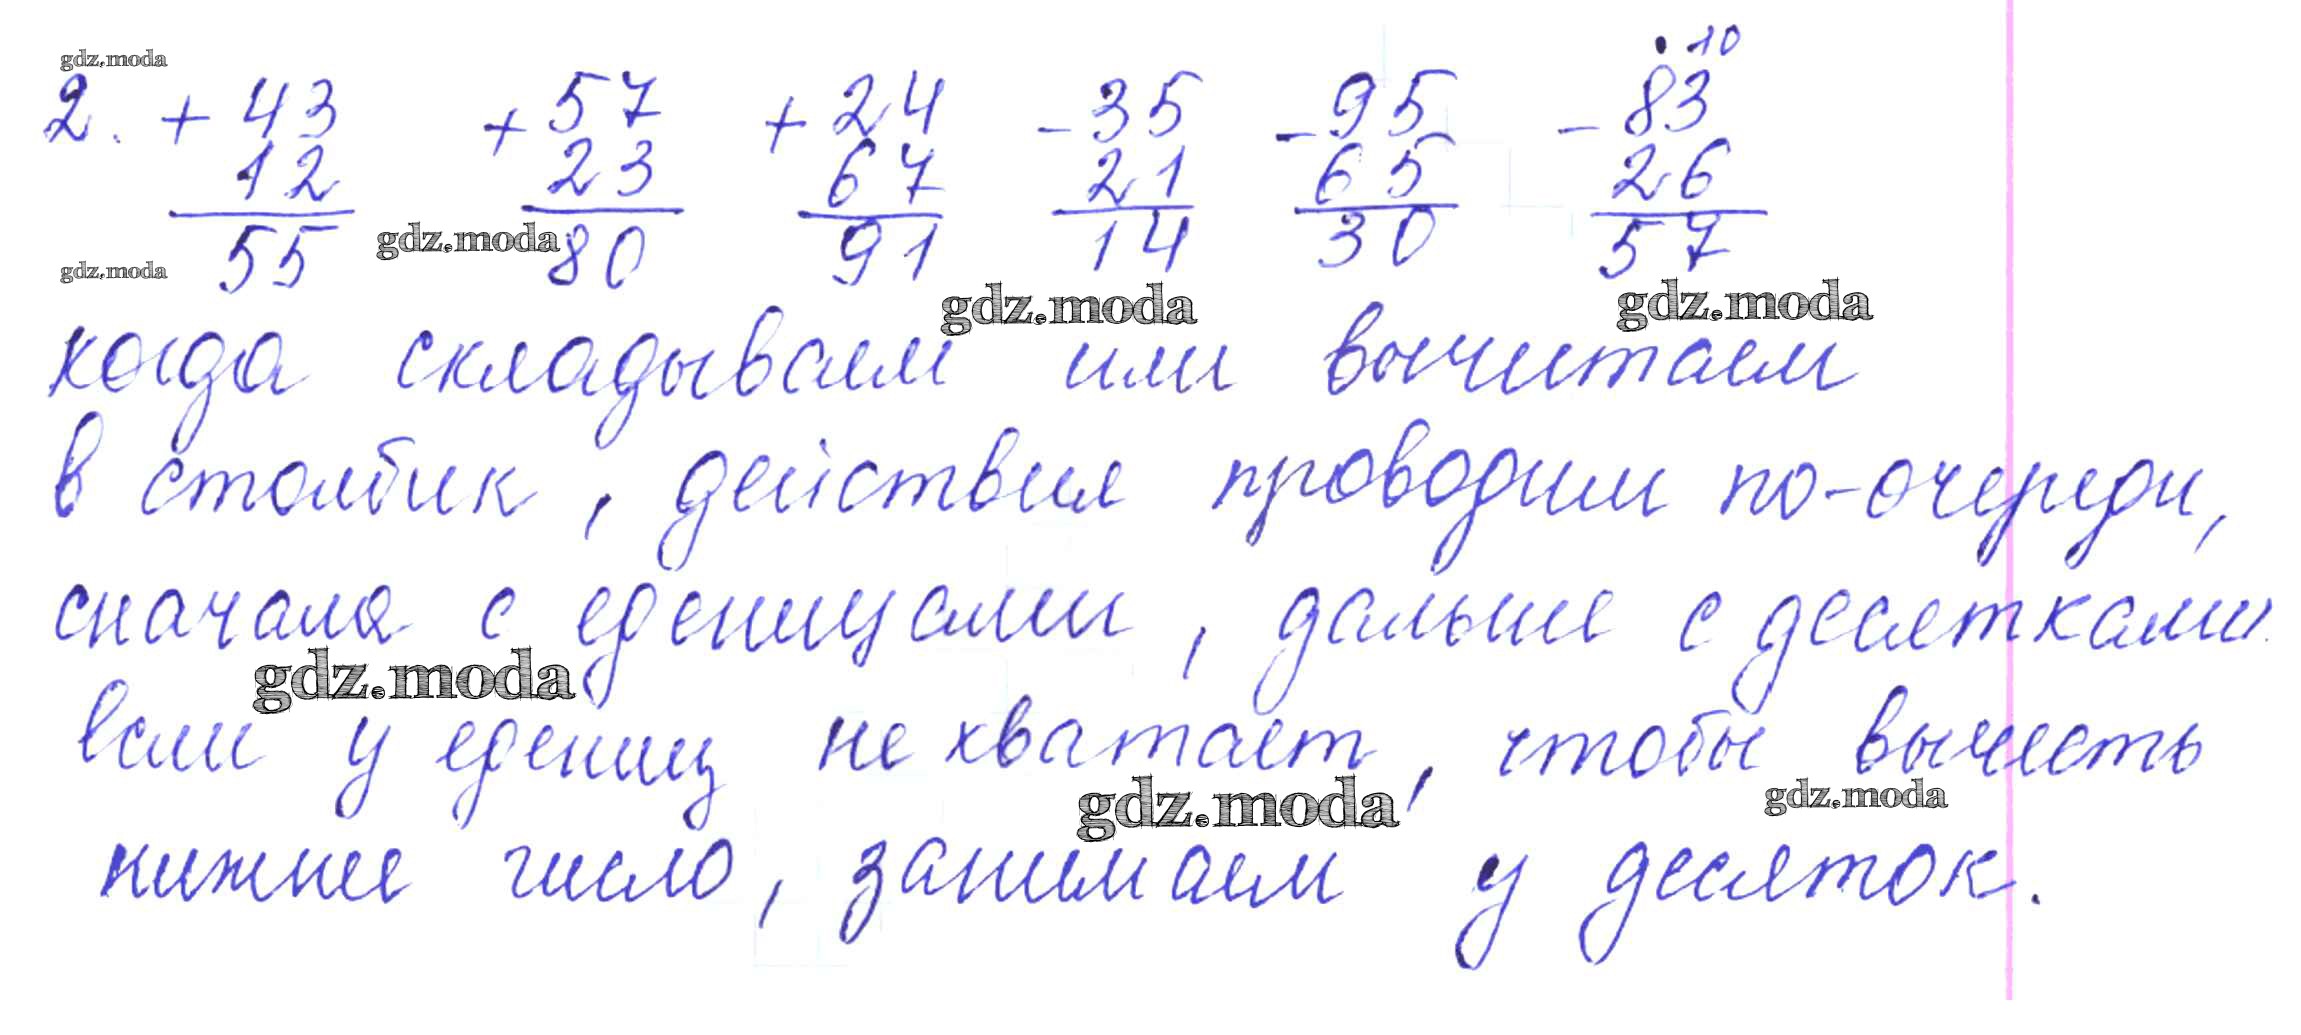 gdz.moda
10
2. + 43 + 57 + 24 - 35 - 95 - 83
12 23 67 21 65 26
55 80 91 14 30 57
gdz.moda gdz.moda
gdz.moda gdz.moda
когда складываем или вычитаем
в столбик, действия проводим по-очереди,
сначала с еденицами, дальше с десятками
gdz.moda
если у едениц не хватает, чтобы вычесть
gdz.moda gdz.moda
нижнее число, занимаем у десяток.